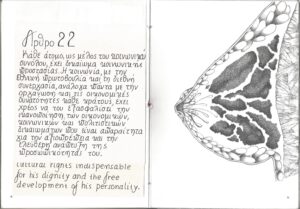 Άρθρο 22
Κάθε άτομο, ως μέλος του κοινωνικού
συνόλου, έχει δικαίωμα κοινωνικής
προστασίας. Η κοινωνία, με την
εθνική πρωτοβουλία και τη διεθνή
συνεργασία, ανάλογα πάντα με την
οργάνωση και τις οικονομικές
δυνατότητες κάθε κράτους, έχει
χρέος να του εξασφαλίσει την
ικανοποίηση των οικονομικών,
κοινωνικών και πολιτιστικών
δικαιωμάτων που είναι απαραίτητα
για την αξιοπρέπεια και την
ελεύθερη ανάπτυξη της
προσωπικότητάς του.
cultural rights indispensable
for his dignity and the free
development of his personality.